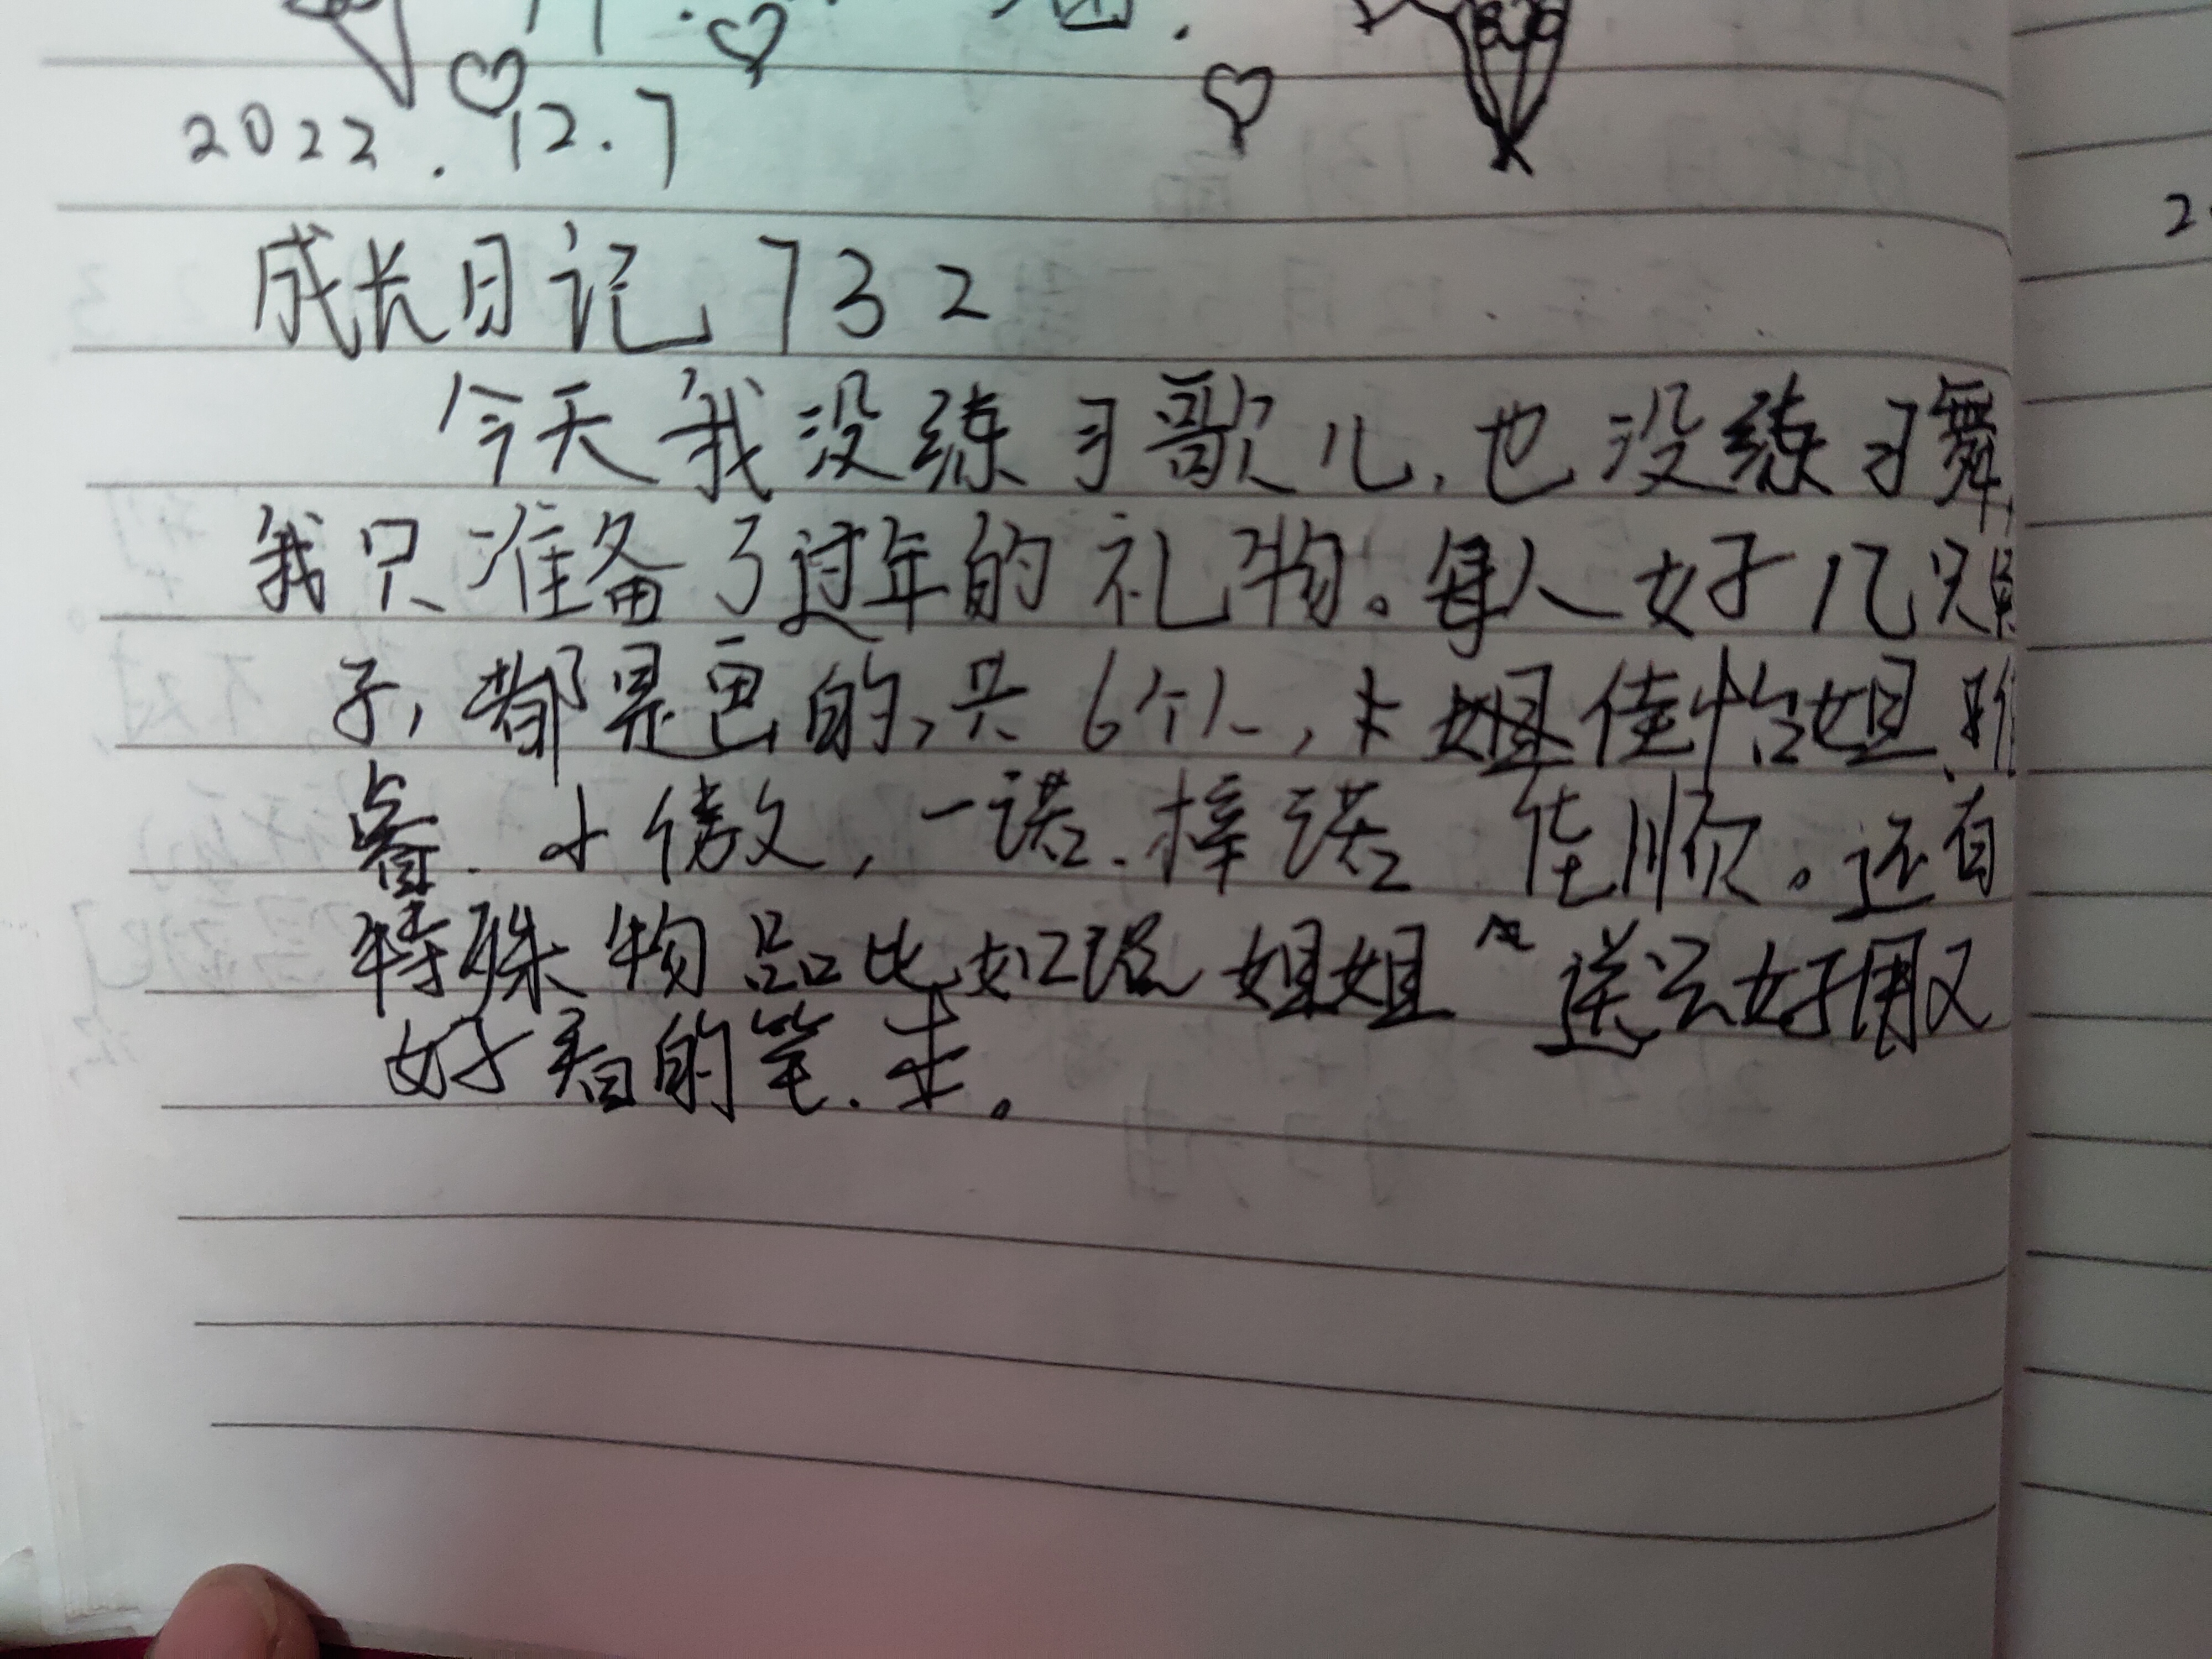 2022.12.7
成长日记732
今天我没练习歌儿,也没练习舞,
我只准备了过年的礼物。每人好几只
子,都是画的,共6个人,姐佳怡姐、
睿.小傲,一诺.梓诺 佳顺。还有
特殊物品比如说姐姐 送云好用又
好看的笔.本。